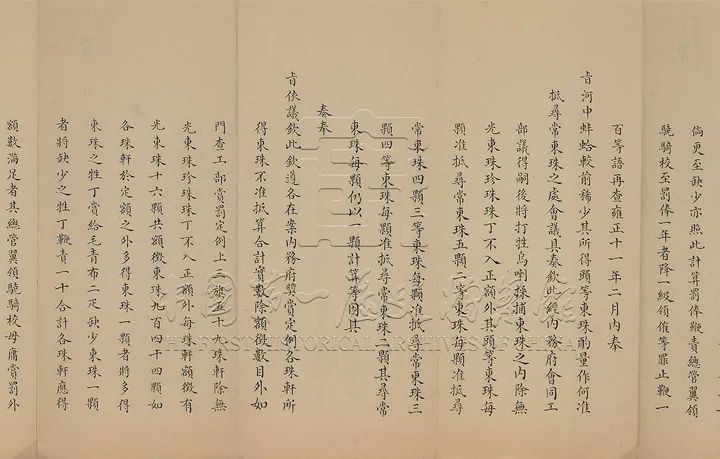 倘更至缺少亦照此計算罰俸鞭責總管翼領
驍騎校至罰俸一年者降一級領催等罪止鞭一
百等語再查雍正十一年二月內奉
旨河中蚌蛤較前稀少其所得頭等東珠酌量作何准
抵尋常東珠之處會議具奏欽此經內務府會同工
部議得嗣後將打牲烏喇採捕東珠之內除無
光東珠珍珠珠丁不入正額外其頭等東珠每
顆准抵尋常東珠五顆二等東珠每顆准抵尋
常東珠四顆三等東珠每顆准抵尋常東珠三
顆四等東珠每顆准抵尋常東珠二顆其尋常
東珠每顆仍以一顆計算等因具
奏奉
旨依議欽此欽遵各在案內務府獎賞定例各珠軒所
得東珠不准抵算合計實數除額徵數目外如
門查工部賞罰定例上三旗五十九珠軒除無
光東珠珍珠珠丁不入正額外每珠軒額徵有
光東珠十六顆共額徵東珠九百四十四顆如
各珠軒於定額之外多得東珠一顆者將多得
東珠之牲丁賞給毛青布二疋缺少東珠一顆
者將缺少之牲丁鞭責一十合計各珠軒應得
額數滿足者其總管翼領驍騎校毋庸賞罰外
中國第一歷史檔案館
THE FIRST HISTORICAL ARCHIVES OF CHINA